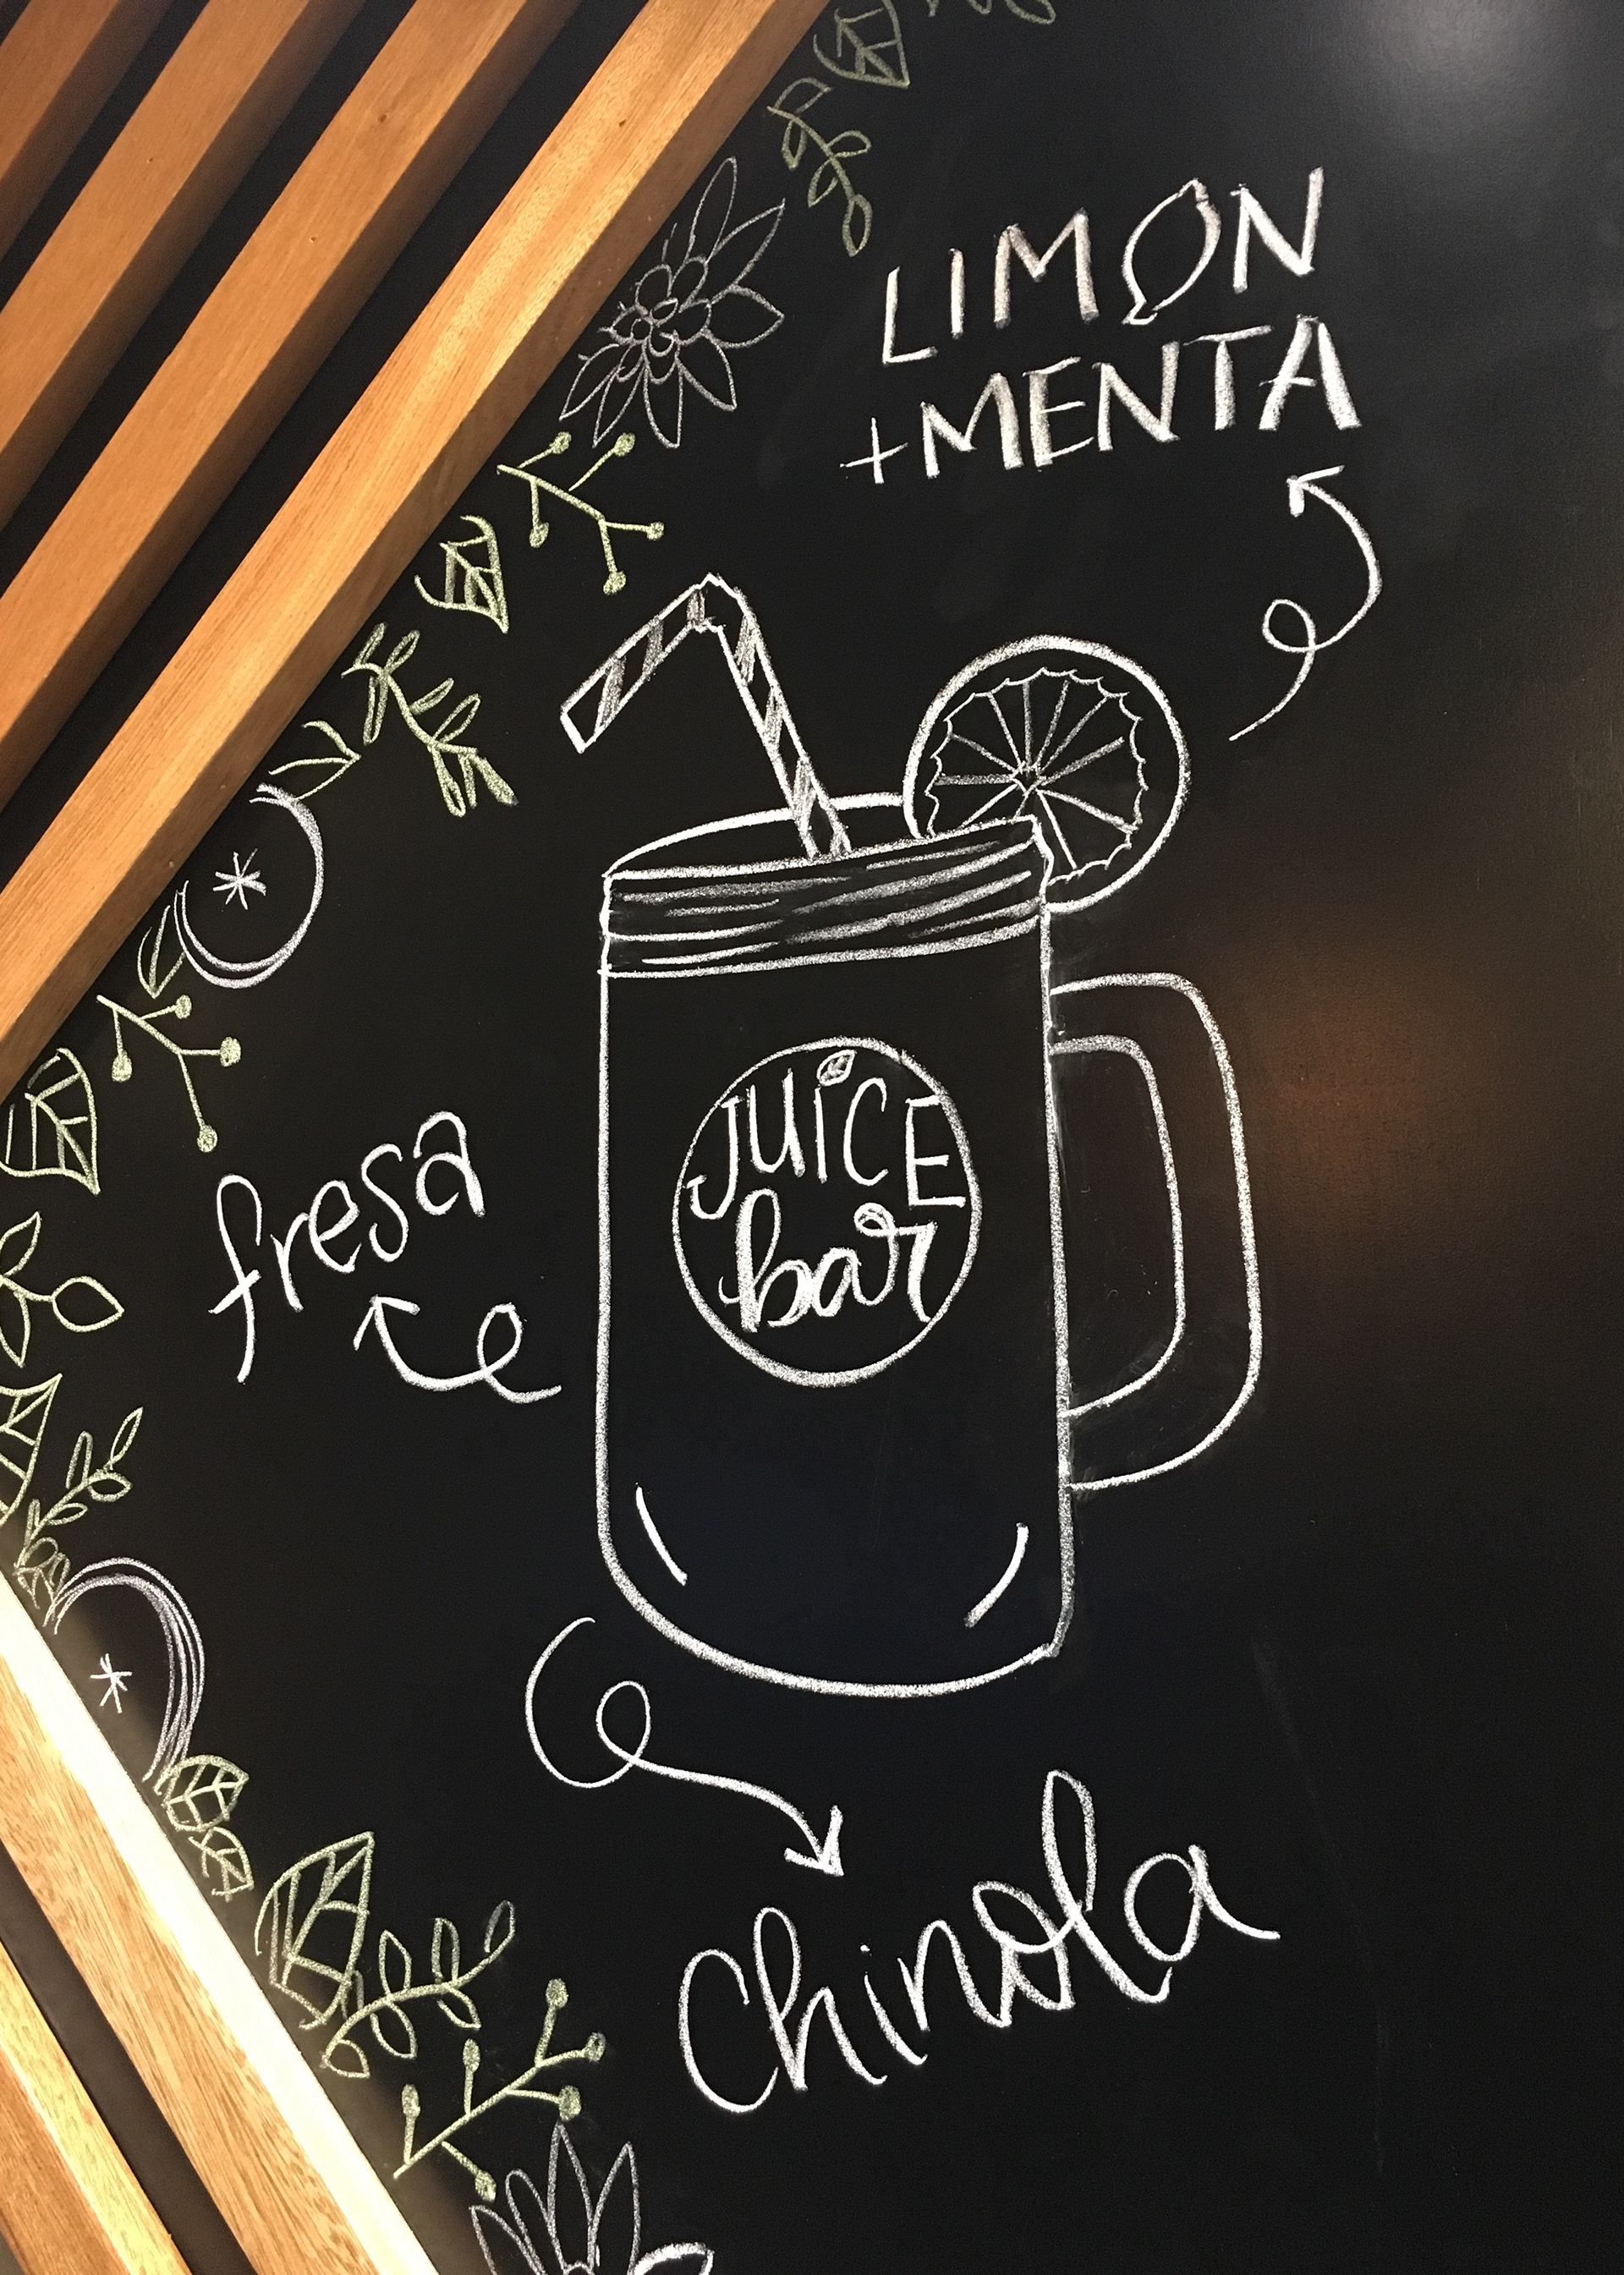 LIMON
+MENTA
JUiCE
bar
fresa
Chinola